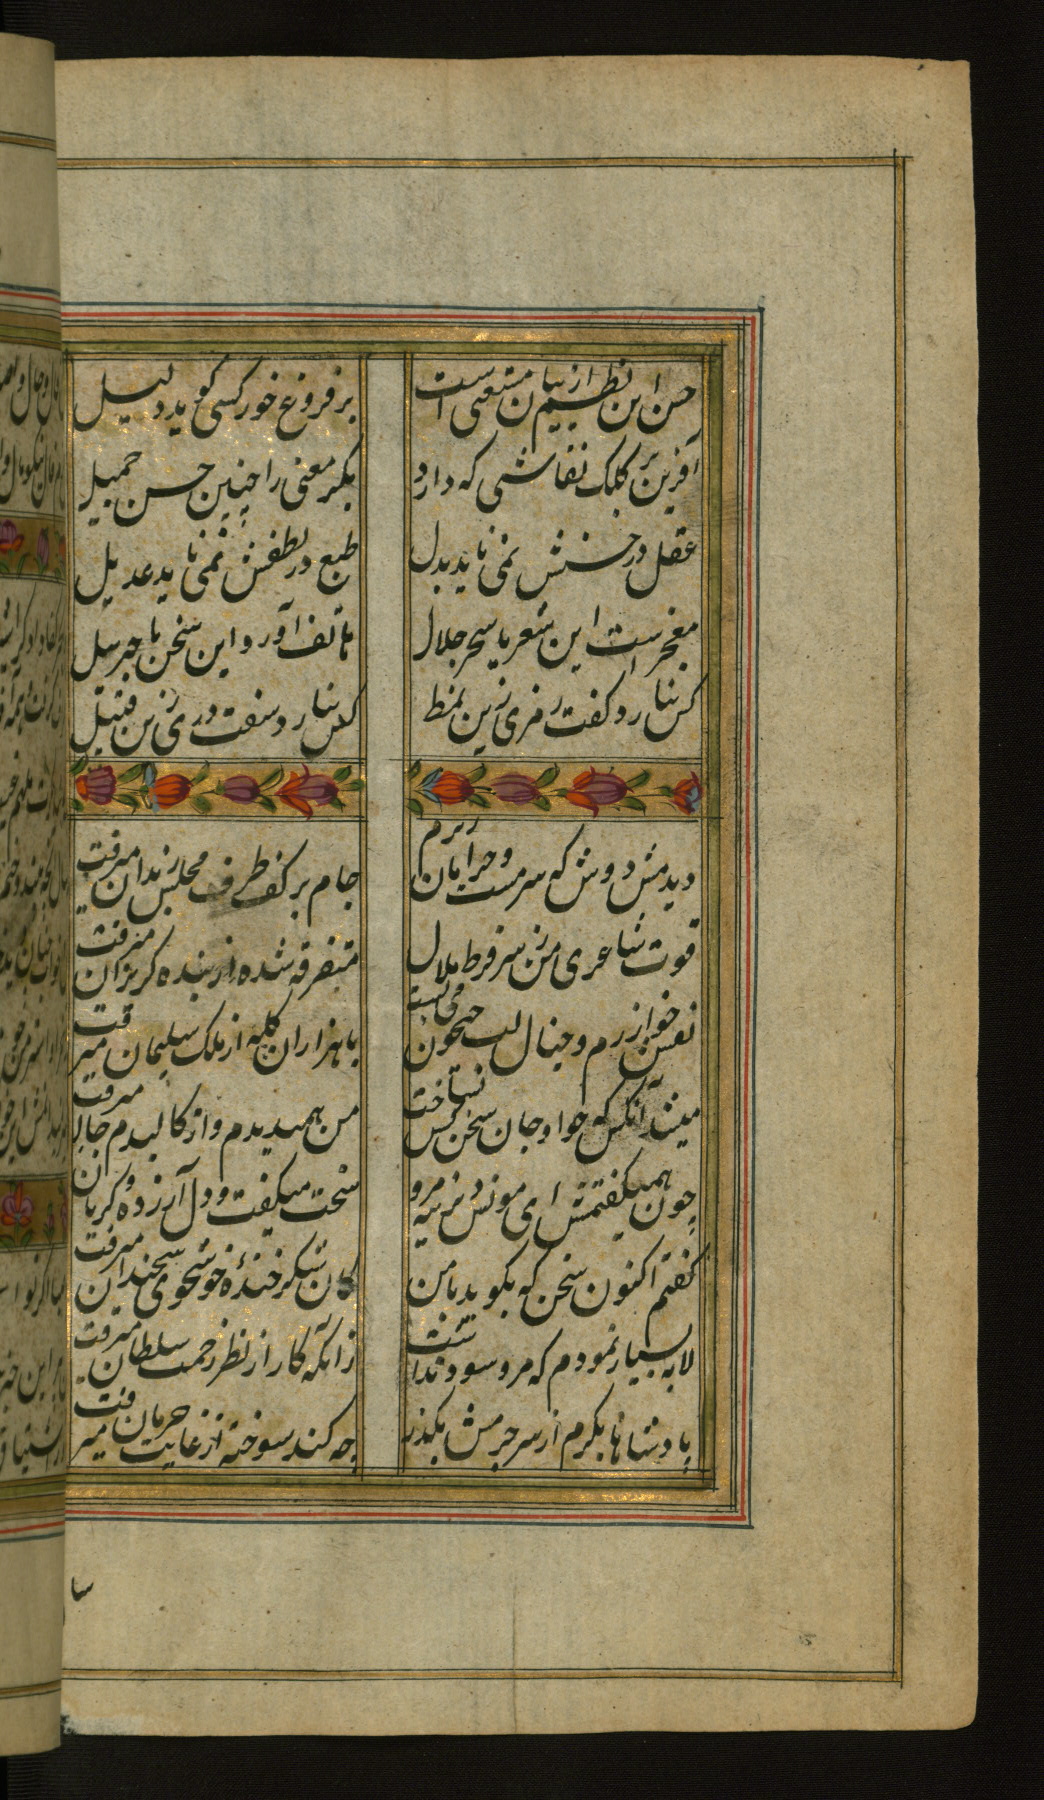 حسن این نظم از بیان مستغنی است
بر فروغ خور کسی گوید دلیل
آفرین بر کلک نقاشی که داد
بکر معنی را چنین حسن جمیل
عقل در حسنش نمی یابد بدل
طبع در لطفش نمی یابد عدیل
معجز است این شعر یا سحر حلال
هاتف آورد این سخن یا جبرئیل
کس نیارد گفت رمزی زین نمط
کس نیارد سفت دری زین قبیل
دیدمش دوش که سرمست و خرامان میرفت
جام بر کف طرف مجلس رندان میرفت
قوت شاعری من ز سر فرط ملال
متنفر شده از بنده گریزان میرفت
نقش خوارزم و خیال لب جیحون می بست
با هزاران گله از ملک سلیمان میرفت
میشد آنکس که جز او جان سخن کس نشناخت
من همیدیدم و از کالبدم جان میرفت
چون همیگفتمش ای مونس دیرینه مرو
سخت میگفت و دل آزرده و گریان میرفت
گفتم اکنون سخن که بگوید با من
کان شکر خنده خوشخوی سخندان میرفت
لابه بسیار نمودم که مرو سود نداشت
زانکه کار از نظر رحمت سلطان میرفت
پادشاها بکرم از سر جرمش بگذر
چه کند سوخته از غایت حرمان میرفت